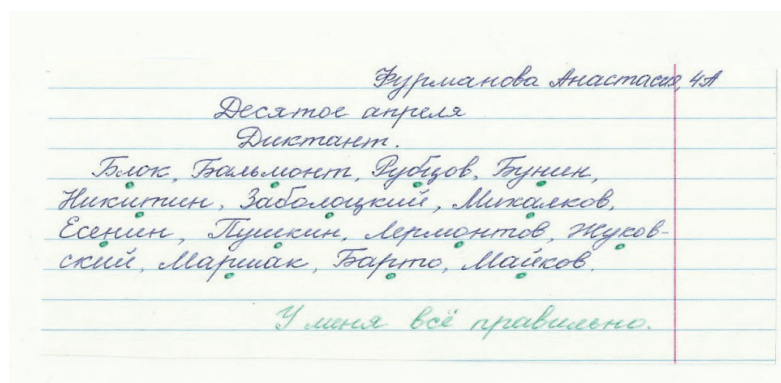 Фурманова Анастасия, 4А
Десятое апреля
Диктант.
Блок, Бальмонт, Рубцов, Бунин,
Никитин, Заболоцкий, Михалков,
Есенин, Пушкин, Лермонтов, Жуков-
ский, Маршак, Барто, Майков.
У меня всё правильно.